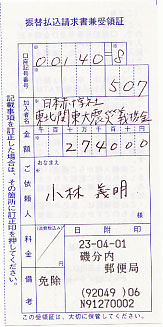 振替払込請求書兼受領証
口座記号番号
00140-8
507
加入者名
日本赤十字社
東北関東大震災義援金
金額
千 百 十 万 千 百 十 円
274000
ご依頼人
おなまえ
小林 義明
料金
備考
免除
日附印
23-04-01
磯分内
郵便局
(92049 )06
N91270002
記載事項を訂正した場合は、その箇所に訂正印を押してください。
この受領証は、大切に保管してください。